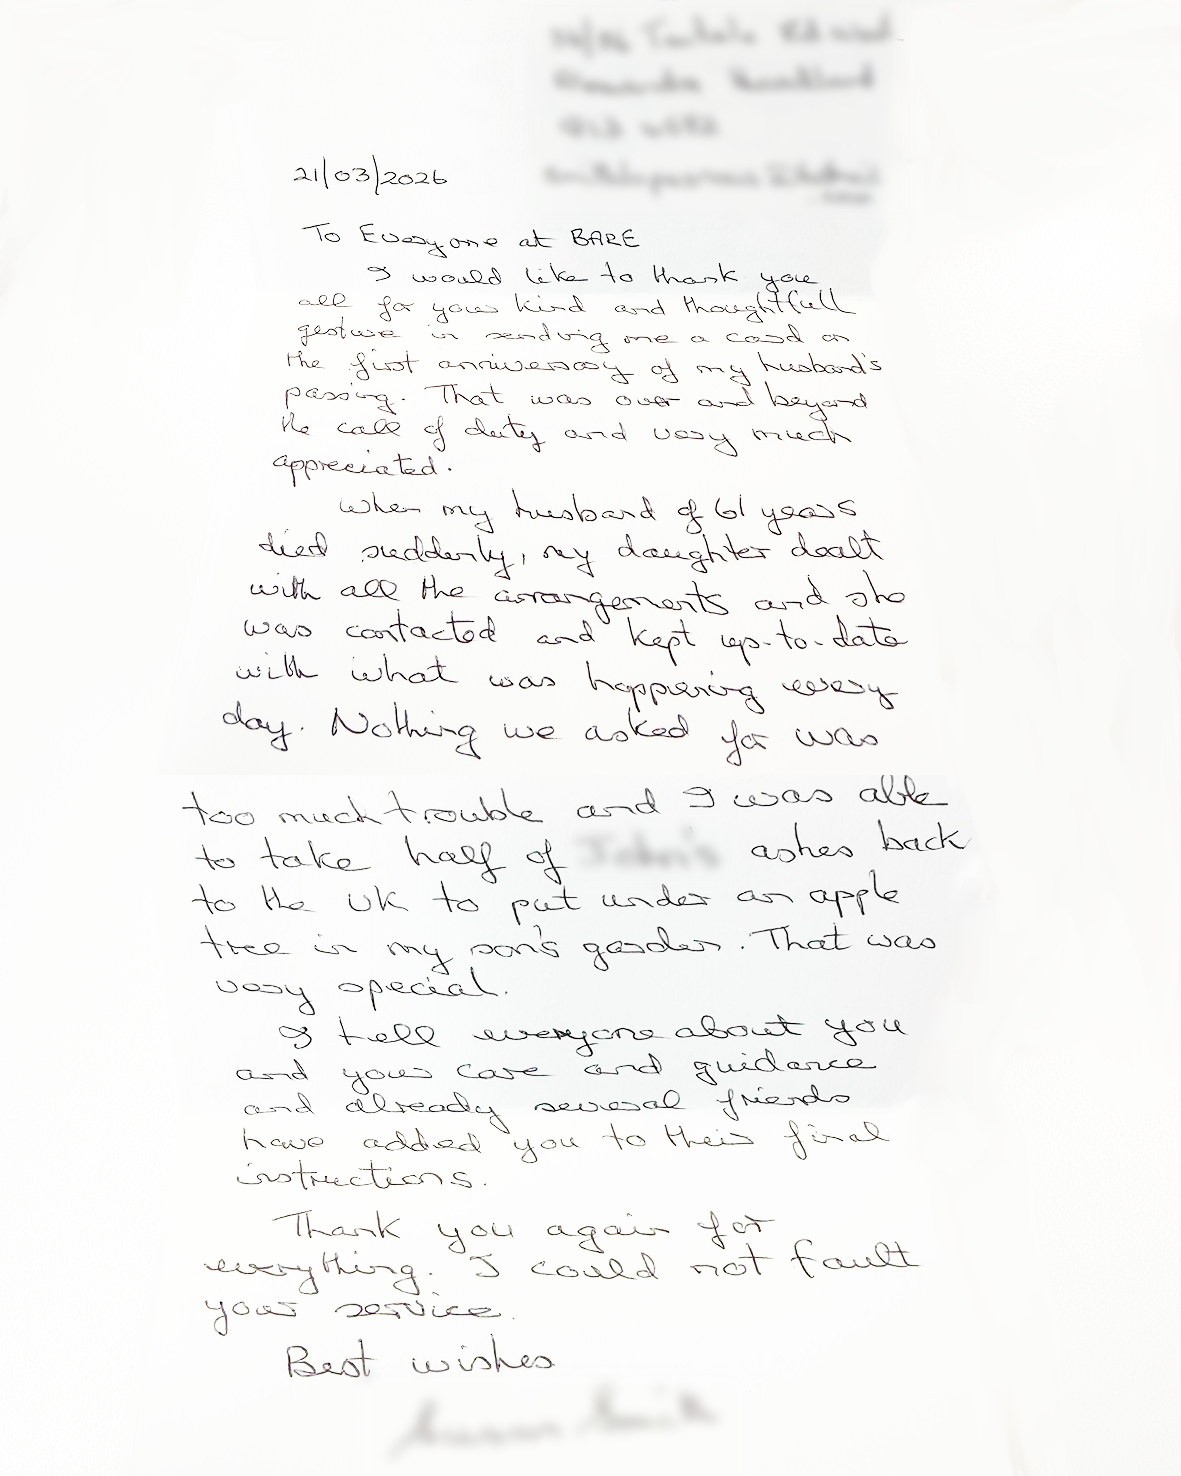 21/03/2026
To Everyone at BARE
I would like to thank you
all for your kind and thoughtfull
gesture in sending me a card on
the first anniversary of my husband's
passing. That was over and beyond
the call of duty and very much
appreciated.
When my husband of 61 years
died suddenly, my daughter dealt
with all the arrangements and she
was contacted and kept up-to-date
with what was happening every
day. Nothing we asked for was
too much trouble and I was able
to take half of ashes back
to the UK to put under an apple
tree in my son's garden. That was
very special.
I tell everyone about you
and your care and guidance
and already several friends
have added you to their final
instructions.
Thank you again for
everything. I could not fault
your service.
Best wishes